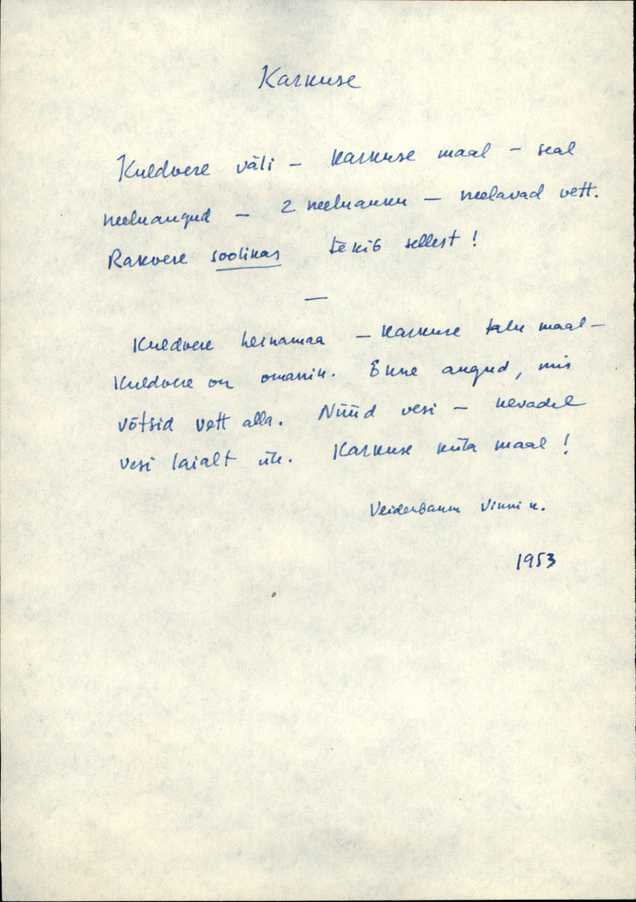 Karkuse
Kuldvere väli – Karkuse maal – seal
neeluaugud – 2 neeluauku – neelavad vett.
Rakvere soolikas tekib sellest!
—
Kuldvere heinamaa – Karkuse talu maal –
Kuldvere on omanik. Enne augud, mis
võtsid vett alla. Nüüd vesi – kevadel
vesi laialt üle. Karkuse küla maal!
Veiderbaum Vinni k.
1953